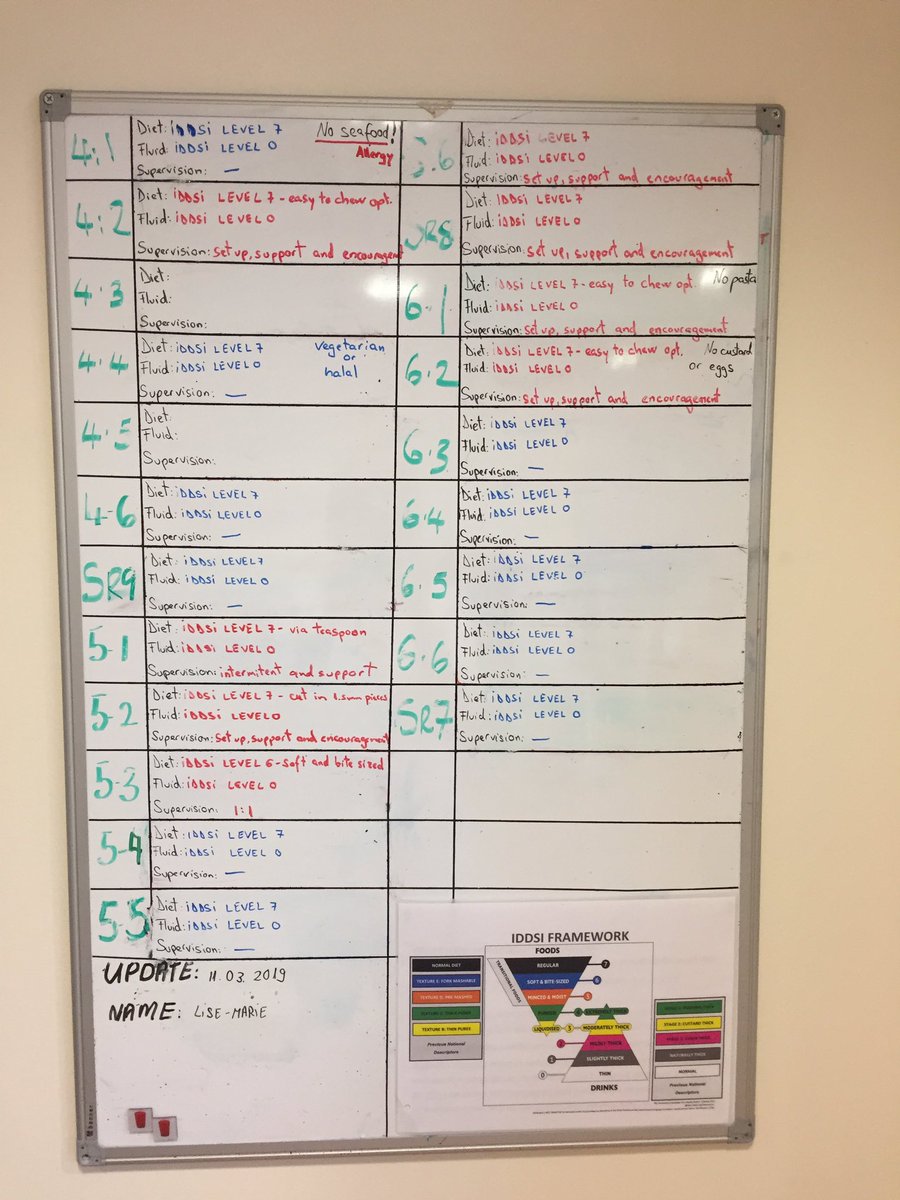 4:1
Diet: iDDSi LEVEL 7 No seafood!
Fluid: iDDSi LEVEL 0 Allergy
Supervision: —
4:2
Diet: iDDSi LEVEL 7 - easy to chew opt.
Fluid: iDDSi LEVEL 0
Supervision: set up, support and encouragement
4.3
Diet:
Fluid:
Supervision:
4.4
Diet: iDDSi LEVEL 7 vegetarian
Fluid: iDDSi LEVEL 0 or
halal
Supervision: —
4.5
Diet:
Fluid:
Supervision:
4-6
Diet: iDDSi LEVEL 7
Fluid: iDDSi LEVEL 0
Supervision: —
SR9
Diet: iDDSi LEVEL 7
Fluid: iDDSi LEVEL 0
Supervision: —
5-1
Diet: iDDSi LEVEL 7 - via teaspoon
Fluid: iDDSi LEVEL 0
Supervision: intermitent and support
5-2
Diet: iDDSi LEVEL 7 - cut in 1.5mm pieces
Fluid: iDDSi LEVEL 0
Supervision: set up, support and encouragement
5-3
Diet: iDDSi LEVEL 6 - Soft and bite sized
Fluid: iDDSi LEVEL 0
Supervision: 1:1
5-4
Diet: iDDSi LEVEL 7
Fluid: iDDSi LEVEL 0
Supervision: —
5-5
Diet: iDDSi LEVEL 7
Fluid: iDDSi LEVEL 0
Supervision: —
UPDATE: 11.03.2019
NAME: LiSE-MARiE
5.6
Diet: iDDSi LEVEL 7
Fluid: iDDSi LEVEL 0
Supervision: set up, support and encouragement
SR8
Diet: iDDSi LEVEL 7
Fluid: iDDSi LEVEL 0
Supervision: set up, support and encouragement
6.1
Diet: iDDSi LEVEL 7 - easy to chew opt. No pasta
Fluid: iDDSi LEVEL 0
Supervision: set up, support and encouragement
6.2
Diet: iDDSi LEVEL 7 - easy to chew opt. No custard
Fluid: iDDSi LEVEL 0 or eggs
Supervision: set up, support and encouragement
6.3
Diet: iDDSi LEVEL 7
Fluid: iDDSi LEVEL 0
Supervision: —
6.4
Diet: iDDSi LEVEL 7
Fluid: iDDSi LEVEL 0
Supervision: —
6.5
Diet: iDDSi LEVEL 7
Fluid: iDDSi LEVEL 0
Supervision: —
6.6
Diet: iDDSi LEVEL 7
Fluid: iDDSi LEVEL 0
Supervision: —
SR7
Diet: iDDSi LEVEL 7
Fluid: iDDSi LEVEL 0
Supervision: —
IDDSI FRAMEWORK
FOODS
TRANSITIONAL FOODS
REGULAR 7
SOFT & BITE-SIZED 6
MINCED & MOIST 5
PUREED 4 EXTREMELY THICK
LIQUIDISED 3 MODERATELY THICK
2 MILDLY THICK
1 SLIGHTLY THICK
0 THIN
DRINKS
NORMAL DIET
TEXTURE E: FORK MASHABLE
TEXTURE D: PRE MASHED
TEXTURE B: THIN PUREE
Previous National
Descriptors
STAGE 2: CUSTARD THICK
NATURALLY THICK
NORMAL
Previous National
Descriptors